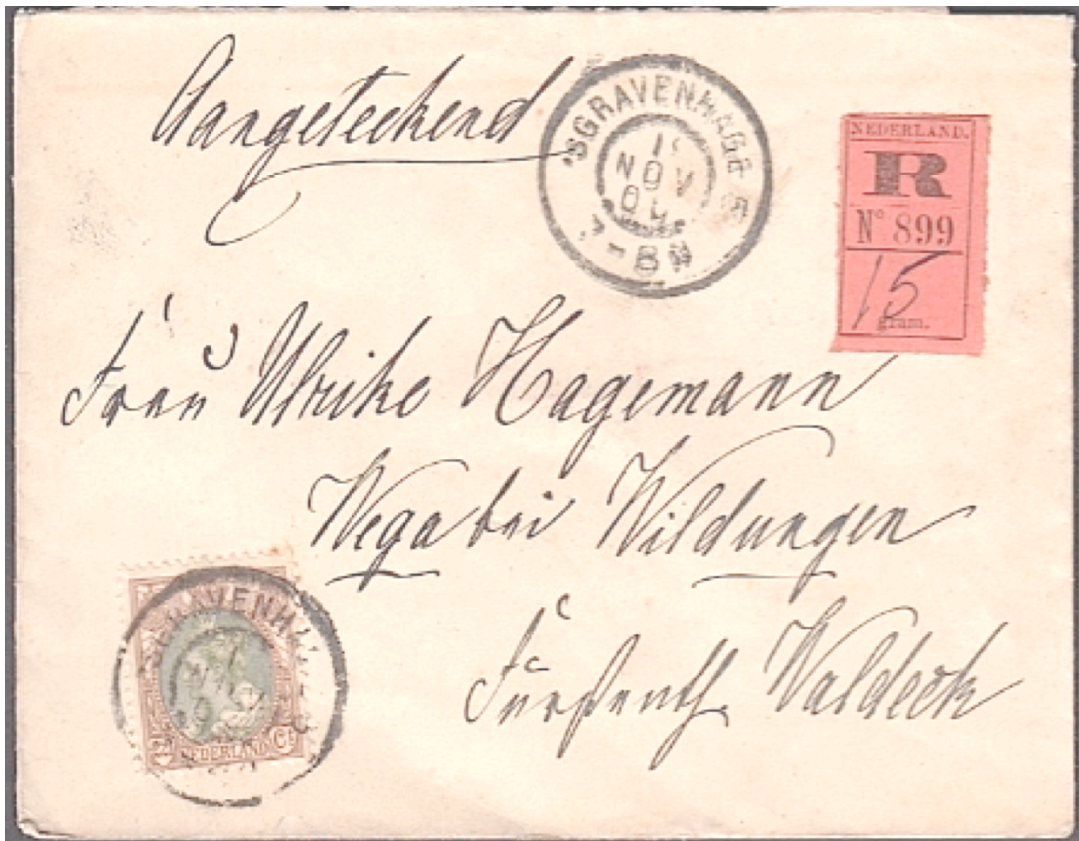 Aangeteekend
'SGRAVENHAGE
NOV
04
7-8N
NEDERLAND.
R
N° 899
15
gram.
Frau Ulrike Hagemann
Wega bei Wildungen
Fürstenth. Waldeck
NEDERLAND